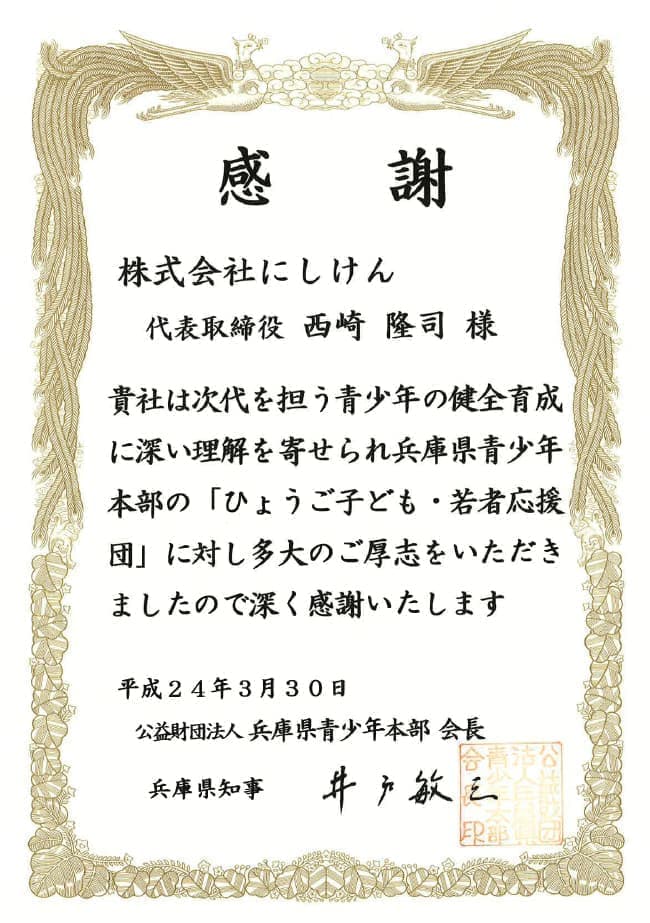 感謝
株式会社にしけん
代表取締役 西崎 隆司 様
貴社は次代を担う青少年の健全育成
に深い理解を寄せられ兵庫県青少年
本部の「ひょうご子ども・若者応援
団」に対し多大のご厚志をいただき
ましたので深く感謝いたします
平成２４年３月３０日
公益財団法人 兵庫県青少年本部 会長
兵庫県知事 井戸敏三